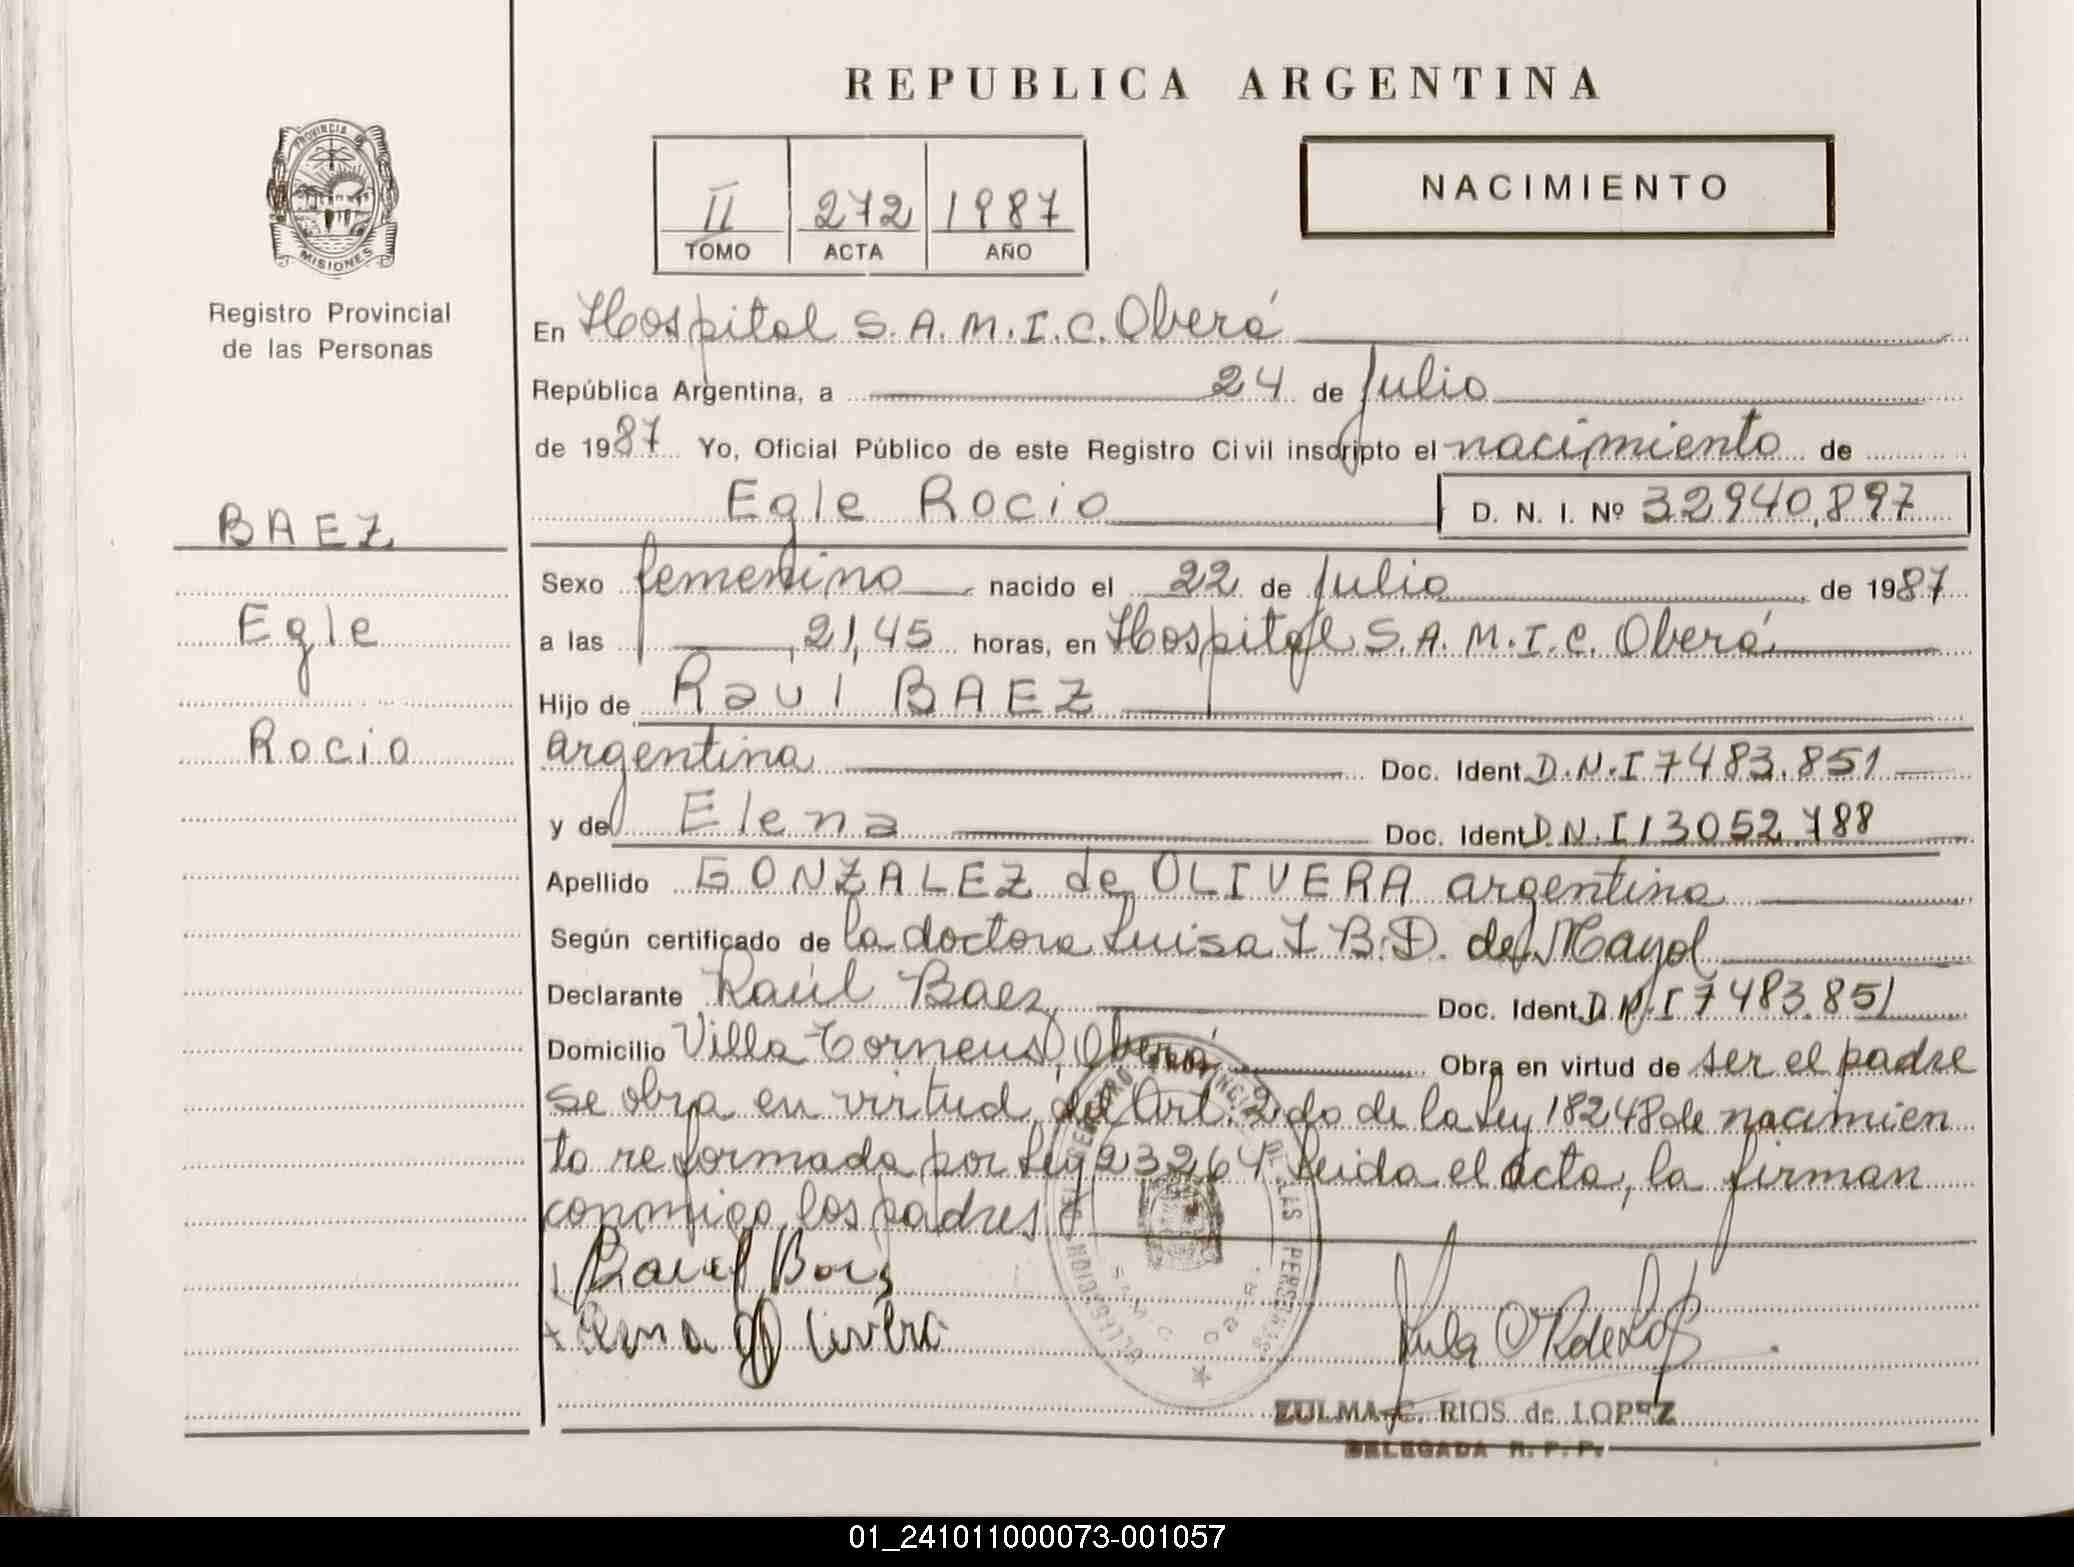 REPUBLICA ARGENTINA
PROVINCIA DE
MISIONES
Registro Provincial
de las Personas
II 272 1987
TOMO ACTA AÑO
NACIMIENTO
En Hospital S.A.M.I.C. Oberá
República Argentina, a 24 de Julio
de 1987 Yo, Oficial Público de este Registro Civil inscripto el nacimiento de
Egle Rocio D. N. I. Nº 32940,897
BAEZ
Egle
Rocio
Sexo femenino nacido el 22 de Julio de 1987
a las 21,45 horas, en Hospital S.A.M.I.C. Oberá
Hijo de Raul BAEZ
argentina Doc. Ident. D.N.I 7483.851
y de Elena Doc. Ident D.N.I 13052.788
Apellido GONZALEZ de OLIVERA argentina
Según certificado de la doctora Luisa I B.D. de Mayol
Declarante Raúl Baez Doc. Ident. D.N.I 7483.851
Domicilio Villa Oberá Obra en virtud de ser el padre
se obra en virtud del Art. 2do de la Ley 18248 de nacimien
to reformada por Ley 23264 Leida el acta, la firman
conmigo los padres
ZULMA C. RIOS de LOPEZ
DELEGADA R. P. P.
01_241011000073-001057